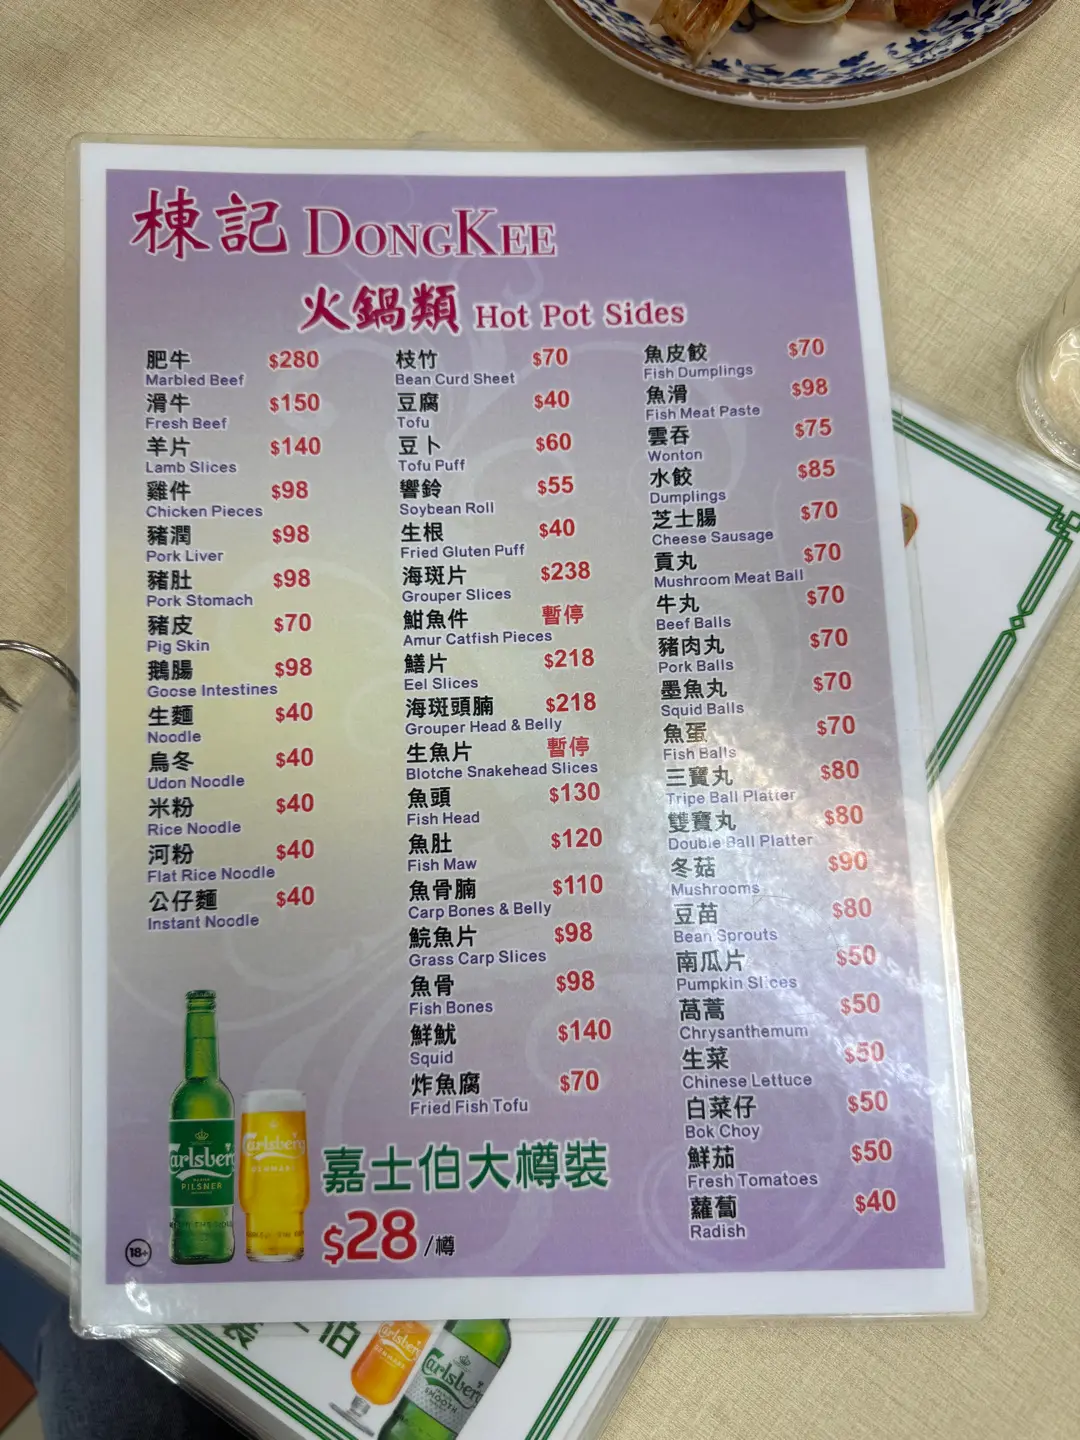 棟記 DONGKEE
火鍋類 Hot Pot Sides
肥牛 $280
Marbled Beef
滑牛 $150
Fresh Beef
羊片 $140
Lamb Slices
雞件 $98
Chicken Pieces
豬潤 $98
Pork Liver
豬肚 $98
Pork Stomach
豬皮 $70
Pig Skin
鵝腸 $98
Goose Intestines
生麵 $40
Noodle
烏冬 $40
Udon Noodle
米粉 $40
Rice Noodle
河粉 $40
Flat Rice Noodle
公仔麵 $40
Instant Noodle
枝竹 $70
Bean Curd Sheet
豆腐 $40
Tofu
豆卜 $60
Tofu Puff
響鈴 $55
Soybean Roll
生根 $40
Fried Gluten Puff
海斑片 $238
Grouper Slices
鮒魚件 暫停
Amur Catfish Pieces
鱔片 $218
Eel Slices
海斑頭腩 $218
Grouper Head & Belly
生魚片 暫停
Blotche Snakehead Slices
魚頭 $130
Fish Head
魚肚 $120
Fish Maw
魚骨腩 $110
Carp Bones & Belly
鯇魚片 $98
Grass Carp Slices
魚骨 $98
Fish Bones
鮮魷 $140
Squid
炸魚腐 $70
Fried Fish Tofu
魚皮餃 $70
Fish Dumplings
魚滑 $98
Fish Meat Paste
雲吞 $75
Wonton
水餃 $85
Dumplings
芝士腸 $70
Cheese Sausage
貢丸 $70
Mushroom Meat Ball
牛丸 $70
Beef Balls
豬肉丸 $70
Pork Balls
墨魚丸 $70
Squid Balls
魚蛋 $70
Fish Balls
三寶丸 $80
Tripe Ball Platter
雙寶丸 $80
Double Ball Platter
冬菇 $90
Mushrooms
豆苗 $80
Bean Sprouts
南瓜片 $50
Pumpkin Slices
萵蒿 $50
Chrysanthemum
生菜 $50
Chinese Lettuce
白菜仔 $50
Bok Choy
鮮茄 $50
Fresh Tomatoes
蘿蔔 $40
Radish
Carlsberg
DENMARK
PILSNER
Carlsberg
DENMARK
嘉士伯大樽裝
$28/樽
18+
裝
伯
Carlsberg
DENMARK
Carlsberg
SMOOTH